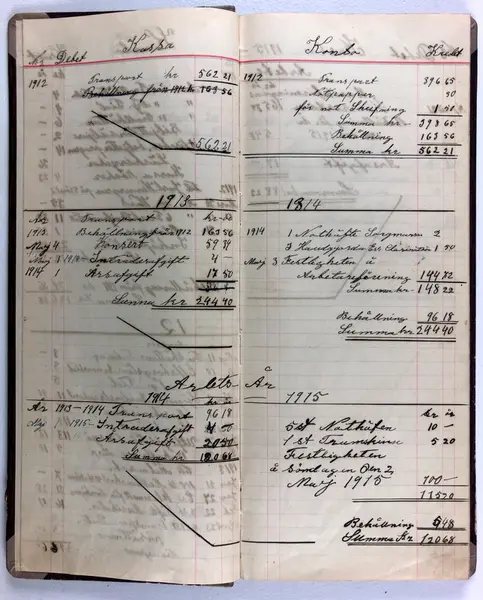 Kr Debet Kassa
1912 Transport kr 562 21
Behållning från 1912 kr 163 56
562 21
1913
År Transport kr ör
1913 Behållning från 1912 163 56
Maj 4 Konsert 59 34
Maj Inträdesafgift 4 —
1914 1 Årsafgift 17 50
Summa kr 244 40
Arbets
1914
År 1913–1914 Transport 96 18
Maj 1 1915 – Inträdesafgift
Årsafgift 20 50
Summa kr 120 68
Konto Kredit
1912 Transport 396 65
Notpapper 50
för not Skrifning 1 50
Summa kr 398 65
Behållning 163 56
Summa kr 562 21
1814
1914 1 Nothäfte 2
3 1 50
Maj 3 Festligheten å
Arbetareförening 144 72
Summa kr 148 22
Behållning 96 18
Summa kr 244 40
År
1915
kr ör
5 st Nothäften 10 —
1 st Trumskinn 5 20
Festligheten
å Söndagen Den 2
Maj 1915 100 —
115 20
Behållning 5 48
Summa Kr 120 68